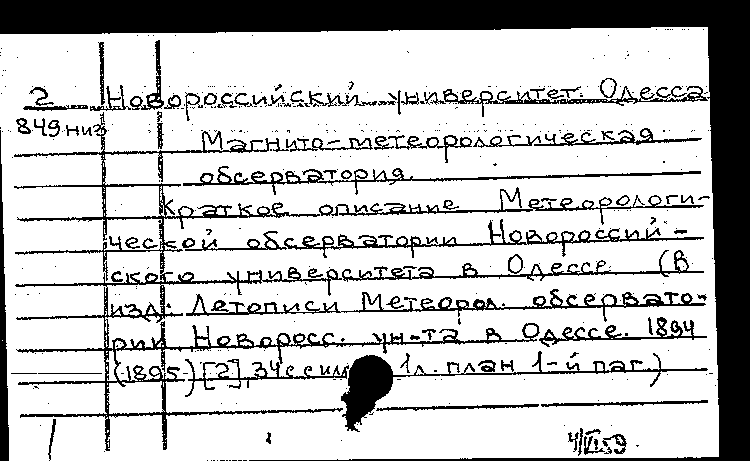 2 Новороссийский университет. Одесса
849 низ
Магнито-метеорологическая
обсерватория.
Краткое описание Метеорологи-
ческой обсерватории Новороссий-
ского университета в Одессе (В
изд: Летописи Метеорол. обсервато-
рии Новоросс. ун-та в Одессе. 1894
(1895.) [2], 34 с с 1 л. план 1-й паг.)
4/VI59